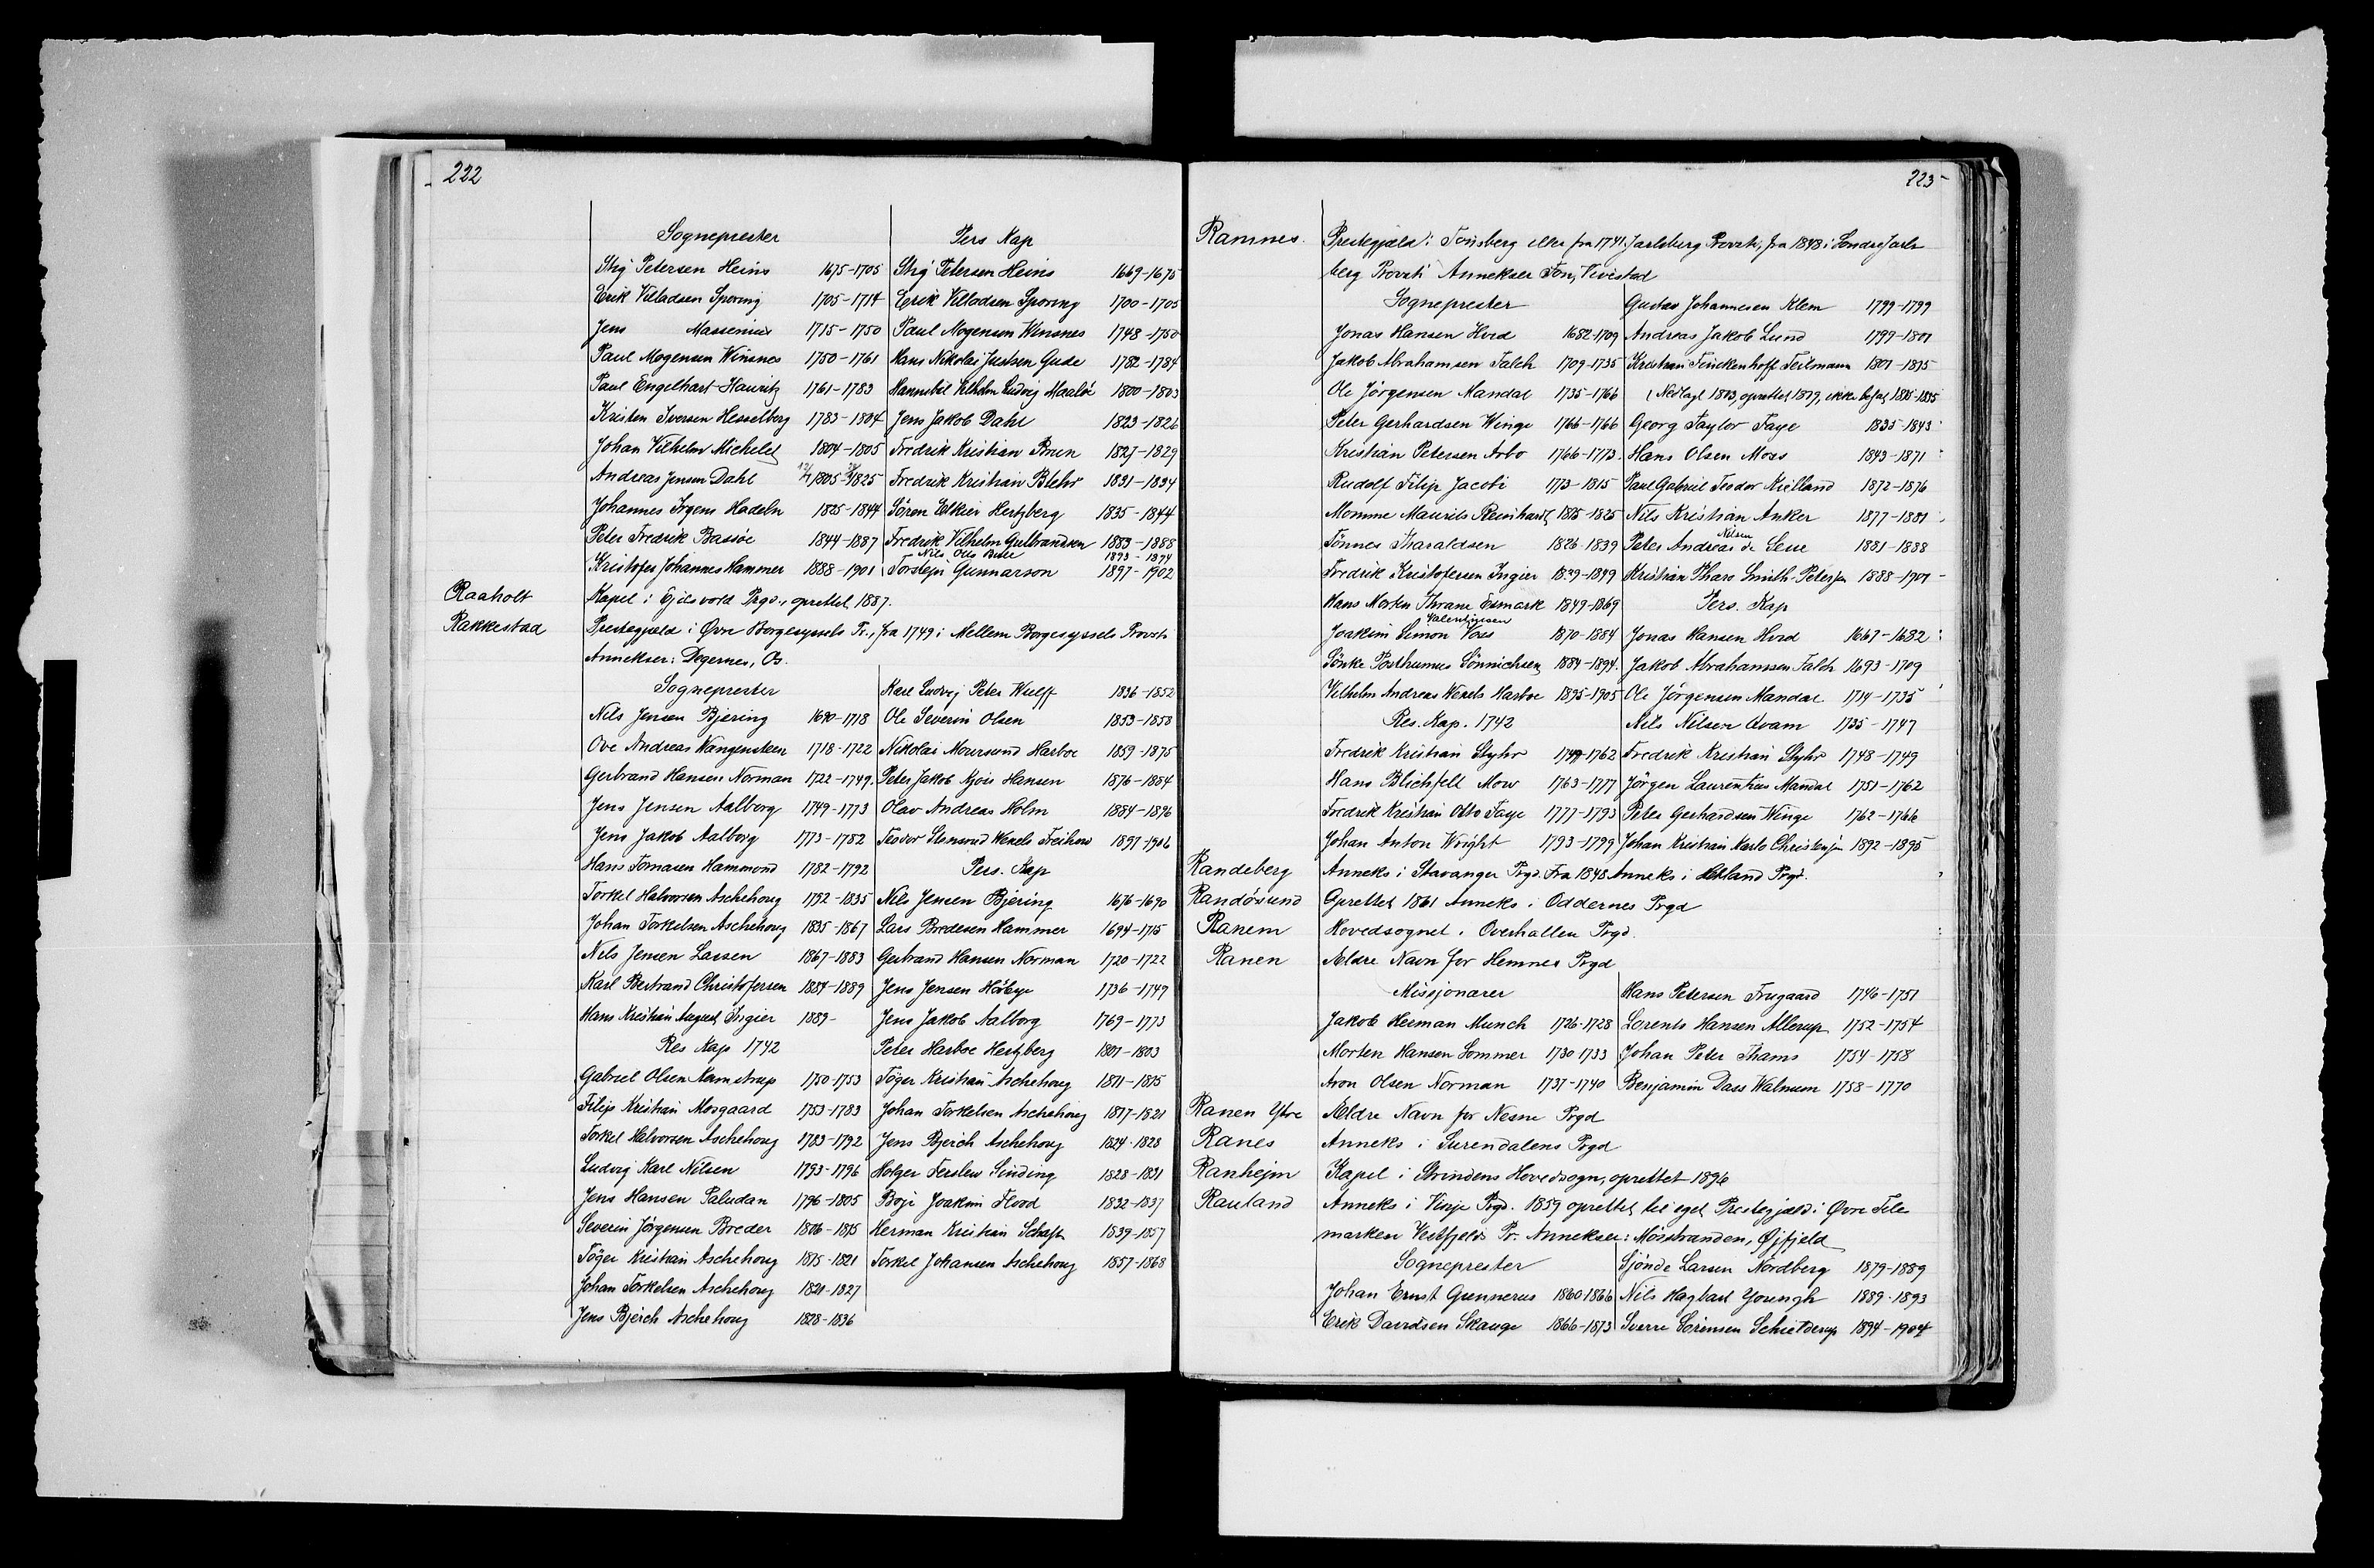 222
Sogneprester
Stig Petersen Heins 1675-1705
Erik Villadsen Sporing 1705-1714
Jens Massenius 1715-1750
Paul Mogensen Winsnes 1750-1761
Paul Engelhart Hauritz 1761-1783
Kristen Iversen Hesselberg 1783-1804
Johan Vilhelm Michelet 1804-1805
Andreas Jensen Dahl 1805-1825
Johannes Irgens Hadeln 1825-1844
Peter Fredrik Bassøe 1844-1887
Kristofer Johannes Hammer 1888-1901
Pers Kap
Stig Petersen Heins 1669-1675
Erik Villadsen Sporing 1700-1705
Paul Mogensen Winsnes 1748-1750
Hans Nikolai Justsen Gude 1782-1784
Hannibal Vilhelm Ludvig Maalöe 1800-1803
Jens Jakob Dahl 1823-1826
Fredrik Kristian Brun 1827-1829
Fredrik Kristian Blehr 1831-1834
Sören Elkier Hertzberg 1835-1844
Fredrik Vilhelm Gulbrandsen 1883-1888
Nils Olis 1893-1894
Torstejn Gunnarson 1897-1902
Raaholt Kapel i Ejdsvold Prgd., oprettet 1887.
Rakkestad Prestegjæld i Øvre Borgesyssels Pr., fra 1749 i Mellem Borgesyssels Provsti
Annekser: Degernes, Os.
Sogneprester
Nils Jensen Bjering 1690-1718
Ove Andreas Wangensteen 1718-1722
Gerbrand Hansen Norman 1722-1749.
Jens Jensen Aalborg 1749-1773
Jens Jakob Aalborg 1773-1782
Hans Tomasen Hammond 1782-1792
Torkel Halvorsen Aschehoug 1792-1835
Johan Torkelsen Aschehoug 1835-1867
Nils Jensen Lassen 1867-1883
Karl Bertrand Christofersen 1884-1889
Hans Kristian August Ingier 1889-
Res Kap 1742
Gabriel Olsen Kamstrup 1750-1753
Filip Kristian Mosgaard 1753-1783
Torkel Halvorsen Aschehoug 1783-1792
Ludvig Karl Nilsen 1793-1796
Jens Hansen Paludan 1796-1805
Severin Jörgensen Breder 1806-1815
Töger Kristian Aschehoug 1815-1821
Johan Torkelsen Aschehoug 1821-1827
Jens Bjerch Aschehoug 1828-1836
Karl Ludvig Peter Wulff 1836-1852
Ole Severin Olsen 1853-1858
Nikolai Moursund Harboe 1859-1875
Peter Jakob Hansen 1876-1884
Olav Andreas Holm 1884-1896
Teodor Wexels Freihow 1897-1906
Pers. Kap
Nils Jensen Bjering 1676-1690
Lars Bredesen Hammer 1694-1715
Gerbrand Hansen Norman 1720-1722
Jens Jensen Höbye 1736-1749
Jens Jakob Aalborg 1769-1773
Peter Harboe Hertzberg 1801-1803
Töger Kristian Aschehoug 1811-1815
Johan Torkelsen Aschehoug 1817-1821
Jens Bjerch Aschehoug 1824-1828
Holger Fersleu Sinding 1828-1831
Boje Joakim Flood 1832-1837
Herman Kristian Schaft 1839-1857
Torkel Johansen Aschehoug 1857-1868
223
Ramnes. Prestegjæld i Tönsberg eller fra 1741 Jarlsberg Provsti, fra 1848 i Söndre Jarls
berg Provsti Annekser Fon, Vivestad
Sogneprester
Jonas Hansen Hvid 1682-1709
Jakob Abrahamsen Falch 1709-1735
Ole Jörgensen Mandal 1735-1766
Peter Gerhardsen Winge 1766-1766
Kristian Petersen Arbo 1766-1773.
Rudolf Filip Jacobi 1773-1815
Momme Maurits Reinhardt 1815-1825
Tönnes Tharaldsen 1826-1839
Fredrik Kristofersen Ingier 1839-1849
Hans Morten Thrane Esmark 1849-1869
Joakim Simon Valentinsen Voss 1870-1884
Sönke Posthumus Sönnichsen 1884-1894.
Vilhelm Andreas Wexels Harboe 1895-1905
Res. Kap. 1742
Fredrik Kristian Styhr 1749-1762
Hans Blichfelt Mow 1763-1777
Fredrik Kristian Otto Faye 1777-1793
Johan Anton Wright 1793-1799
Gustav Johannesen Klem 1799-1799
Andreas Jakob Lund 1799-1801
Kristian Finckenhoff Feilmann 1801-1815
(Nedlagt 1803, oprettet 1819, ikke besat 1815-1835
Georg Taylor Faye 1835-1843
Hans Olsen Moss 1843-1871
Paul Gabriel Teodor Kielland 1872-1876
Nils Kristian Anker 1877-1881
Peter Andreas Nilsen de Seue 1881-1888
Kristian Pharo Smith-Petersen 1888-1901
Pers. Kap
Jonas Hansen Hvid 1667-1682
Jakob Abrahamsen Falch 1693-1709
Ole Jörgensen Mandal 1714-1735
Nils Nilsen Qvam 1735-1747
Fredrik Kristian Styhr 1748-1749
Jörgen Laurentius Mandal 1751-1762
Peter Gerhardsen Winge 1762-1766
Johan Kristian Karlo Christensen 1892-1895
Randeberg Anneks i Stavanger Prgd. Fra 1848 Anneks i Hetland Prgd.
Randösund Oprettet 1861 Anneks i Oddernes Prgd
Ranem Hovedsognet i Overhallen Prgd.
Ranen Ældre Navn for Hemnes Prgd
Missjonærer
Jakob Herman Munch 1726-1728
Morten Hansen Sommer 1730-1733
Aron Olsen Norman 1737-1740
Hans Petersen Trugaard 1746-1751
Lorents Hansen Allerup 1752-1754
Johan Peter Thams 1754-1758
Benjamin Dass Walnum 1758-1770
Ranen Ytre Ældre Navn for Nesne Prgd
Ranes Anneks i Surendalens Prgd
Ranhejm Kapel i Strindens Hovedsogn, oprettet 1896
Rauland Anneks i Vinje Prgd. 1859 oprettet til eget Prestegjæld i Øvre Tele
marken Vestfjelds Pr. Annekser: Mösstranden, Øjfjeld
Sogneprester
Johan Ernst Gunnerus 1860-1866
Erik Davidsen Skauge 1866-1873
Sjönde Larsen Nordberg 1879-1889
Nils Hagbart Youngh 1889-1893
Sverre Sörensen Schielderup 1894-1904